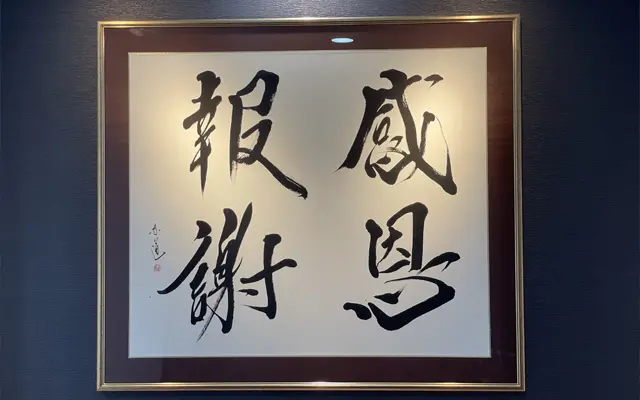 感恩
報謝